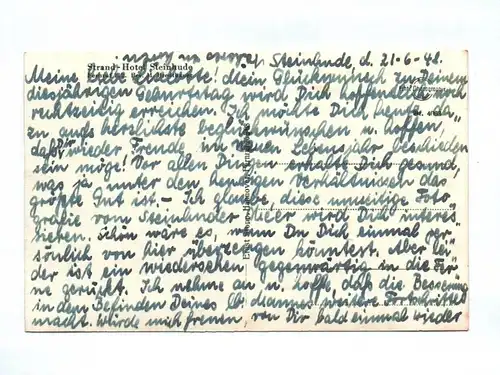 Steinhude, d. 21-6-48.
Strand-Hotel Steinhude
Meine liebe Liselotte! Mein Glückwunsch zu Deinem
diesjährigen Geburtstag wird Dich hoffentlich noch
rechtzeitig erreichen. Ich möchte Dich heute da
zu aufs herzlichste beglückwünschen u. hoffen,
daß Dir wieder Freude im neuen Lebensjahr beschieden
sein möge! Vor allen Dingen erhalte Dich gesund,
was ja unter den heutigen Verhältnissen das
größte Gut ist. - Ich glaube, diese umseitige Foto
grafie vom Steinhuder Meer wird Dich interes
sieren. Schön wäre es, wenn Du Dich einmal per
sönlich von hier überzeugen könntest. Aber lei
der ist ein Wiedersehen gegenwärtig in die Fer
ne gerückt. Ich nehme an u. hoffe, daß die Besserung
in dem Befinden Deines lb. Mannes weitere Fortschritte
macht. Würde mich freuen, von Dir bald einmal wieder